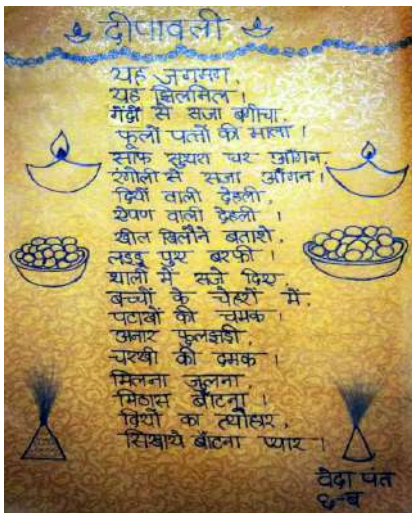 दीपावली
यह जगमग,
यह झिलमिल ।
गेंदों से सजा बगीचा,
फूलों पत्तों की माला ।
साफ सुथरा घर आँगन,
रंगोली से सजा आँगन ।
दियों वाली देहली,
ऐपण वाली देहली ।
खील खिलौने बताशे,
लड्डू पूए बरफी ।
थाली में सजे दिए,
बच्चों के चेहरों में,
पटाखों की चमक ।
अनार फुलझड़ी,
चरखी की दमक ।
मिलना जुलना,
मिठास बाँटना ।
दियों का त्योहार,
सिखाये बाँटना प्यार ।
वेदा पंत
६-ब